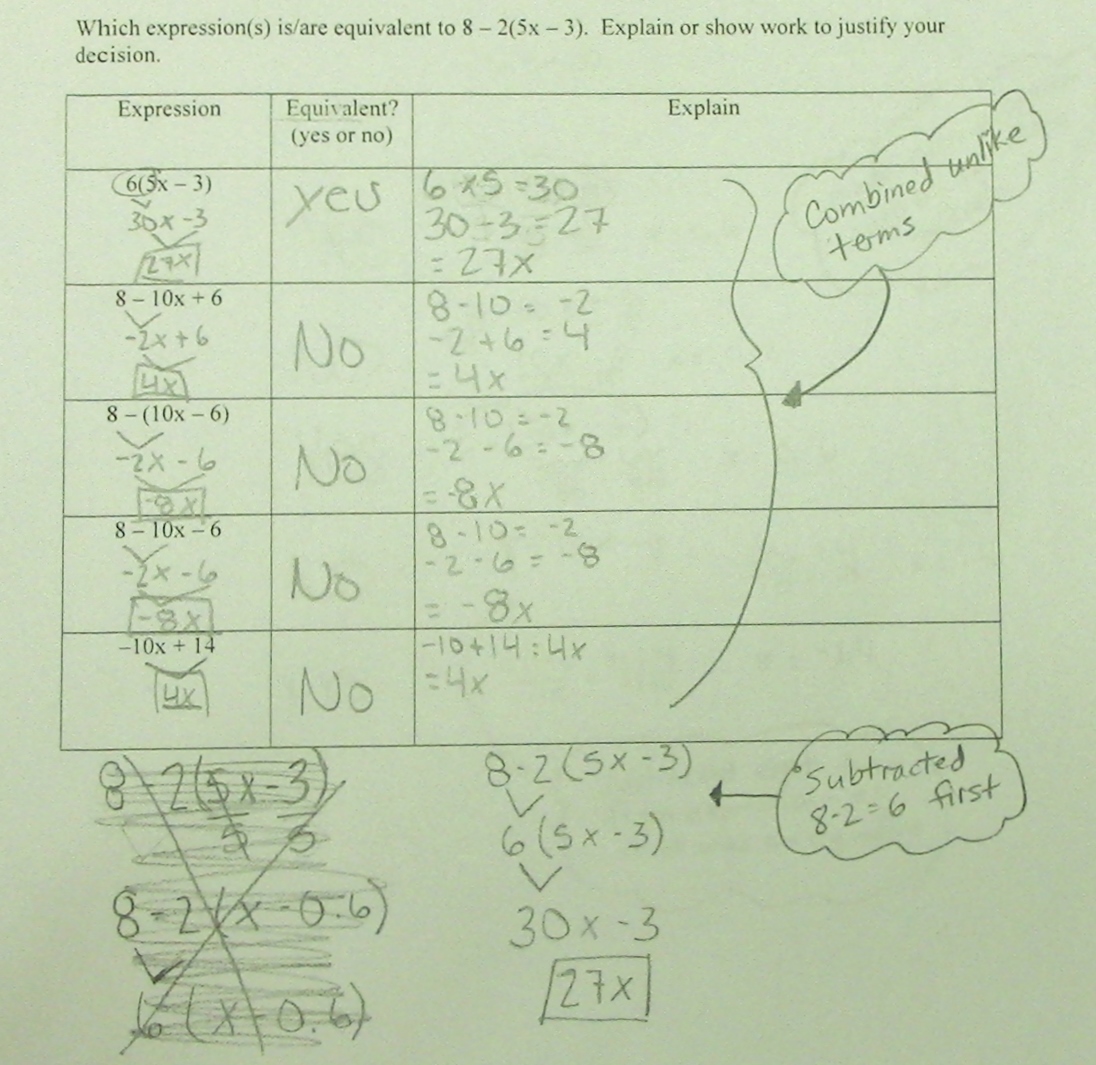 Which expression(s) is/are equivalent to 8 – 2(5x – 3).  Explain or show work to justify your
decision.
Expression
Equivalent?
(yes or no)
Explain
6(5x – 3)
30x -3
27x
yes
6 x5 =30
30 -3 = 27
= 27x
8 – 10x + 6
-2x+6
4x
No
8-10 = -2
-2 +6 = 4
= 4x
8 – (10x – 6)
-2x - 6
-8x
No
8-10 = -2
-2 - 6 = -8
= -8x
8 – 10x – 6
-2x -6
-8x
No
8-10= -2
-2-6 = -8
= -8x
–10x + 14
4x
No
-10+14 = 4x
=4x
Combined unlike
terms
8-2(5x-3)
5 5
8-2(x-0.6)
6(x-0.6)
8-2(5x-3)
6(5x-3)
30x-3
27x
Subtracted
8-2=6 first